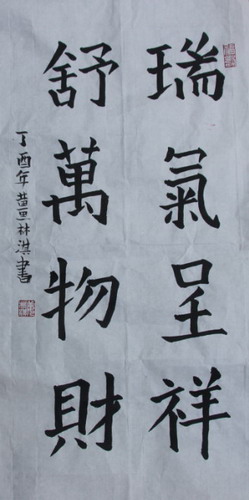 瑞氣呈祥
舒萬物財
丁酉年黄林淇書